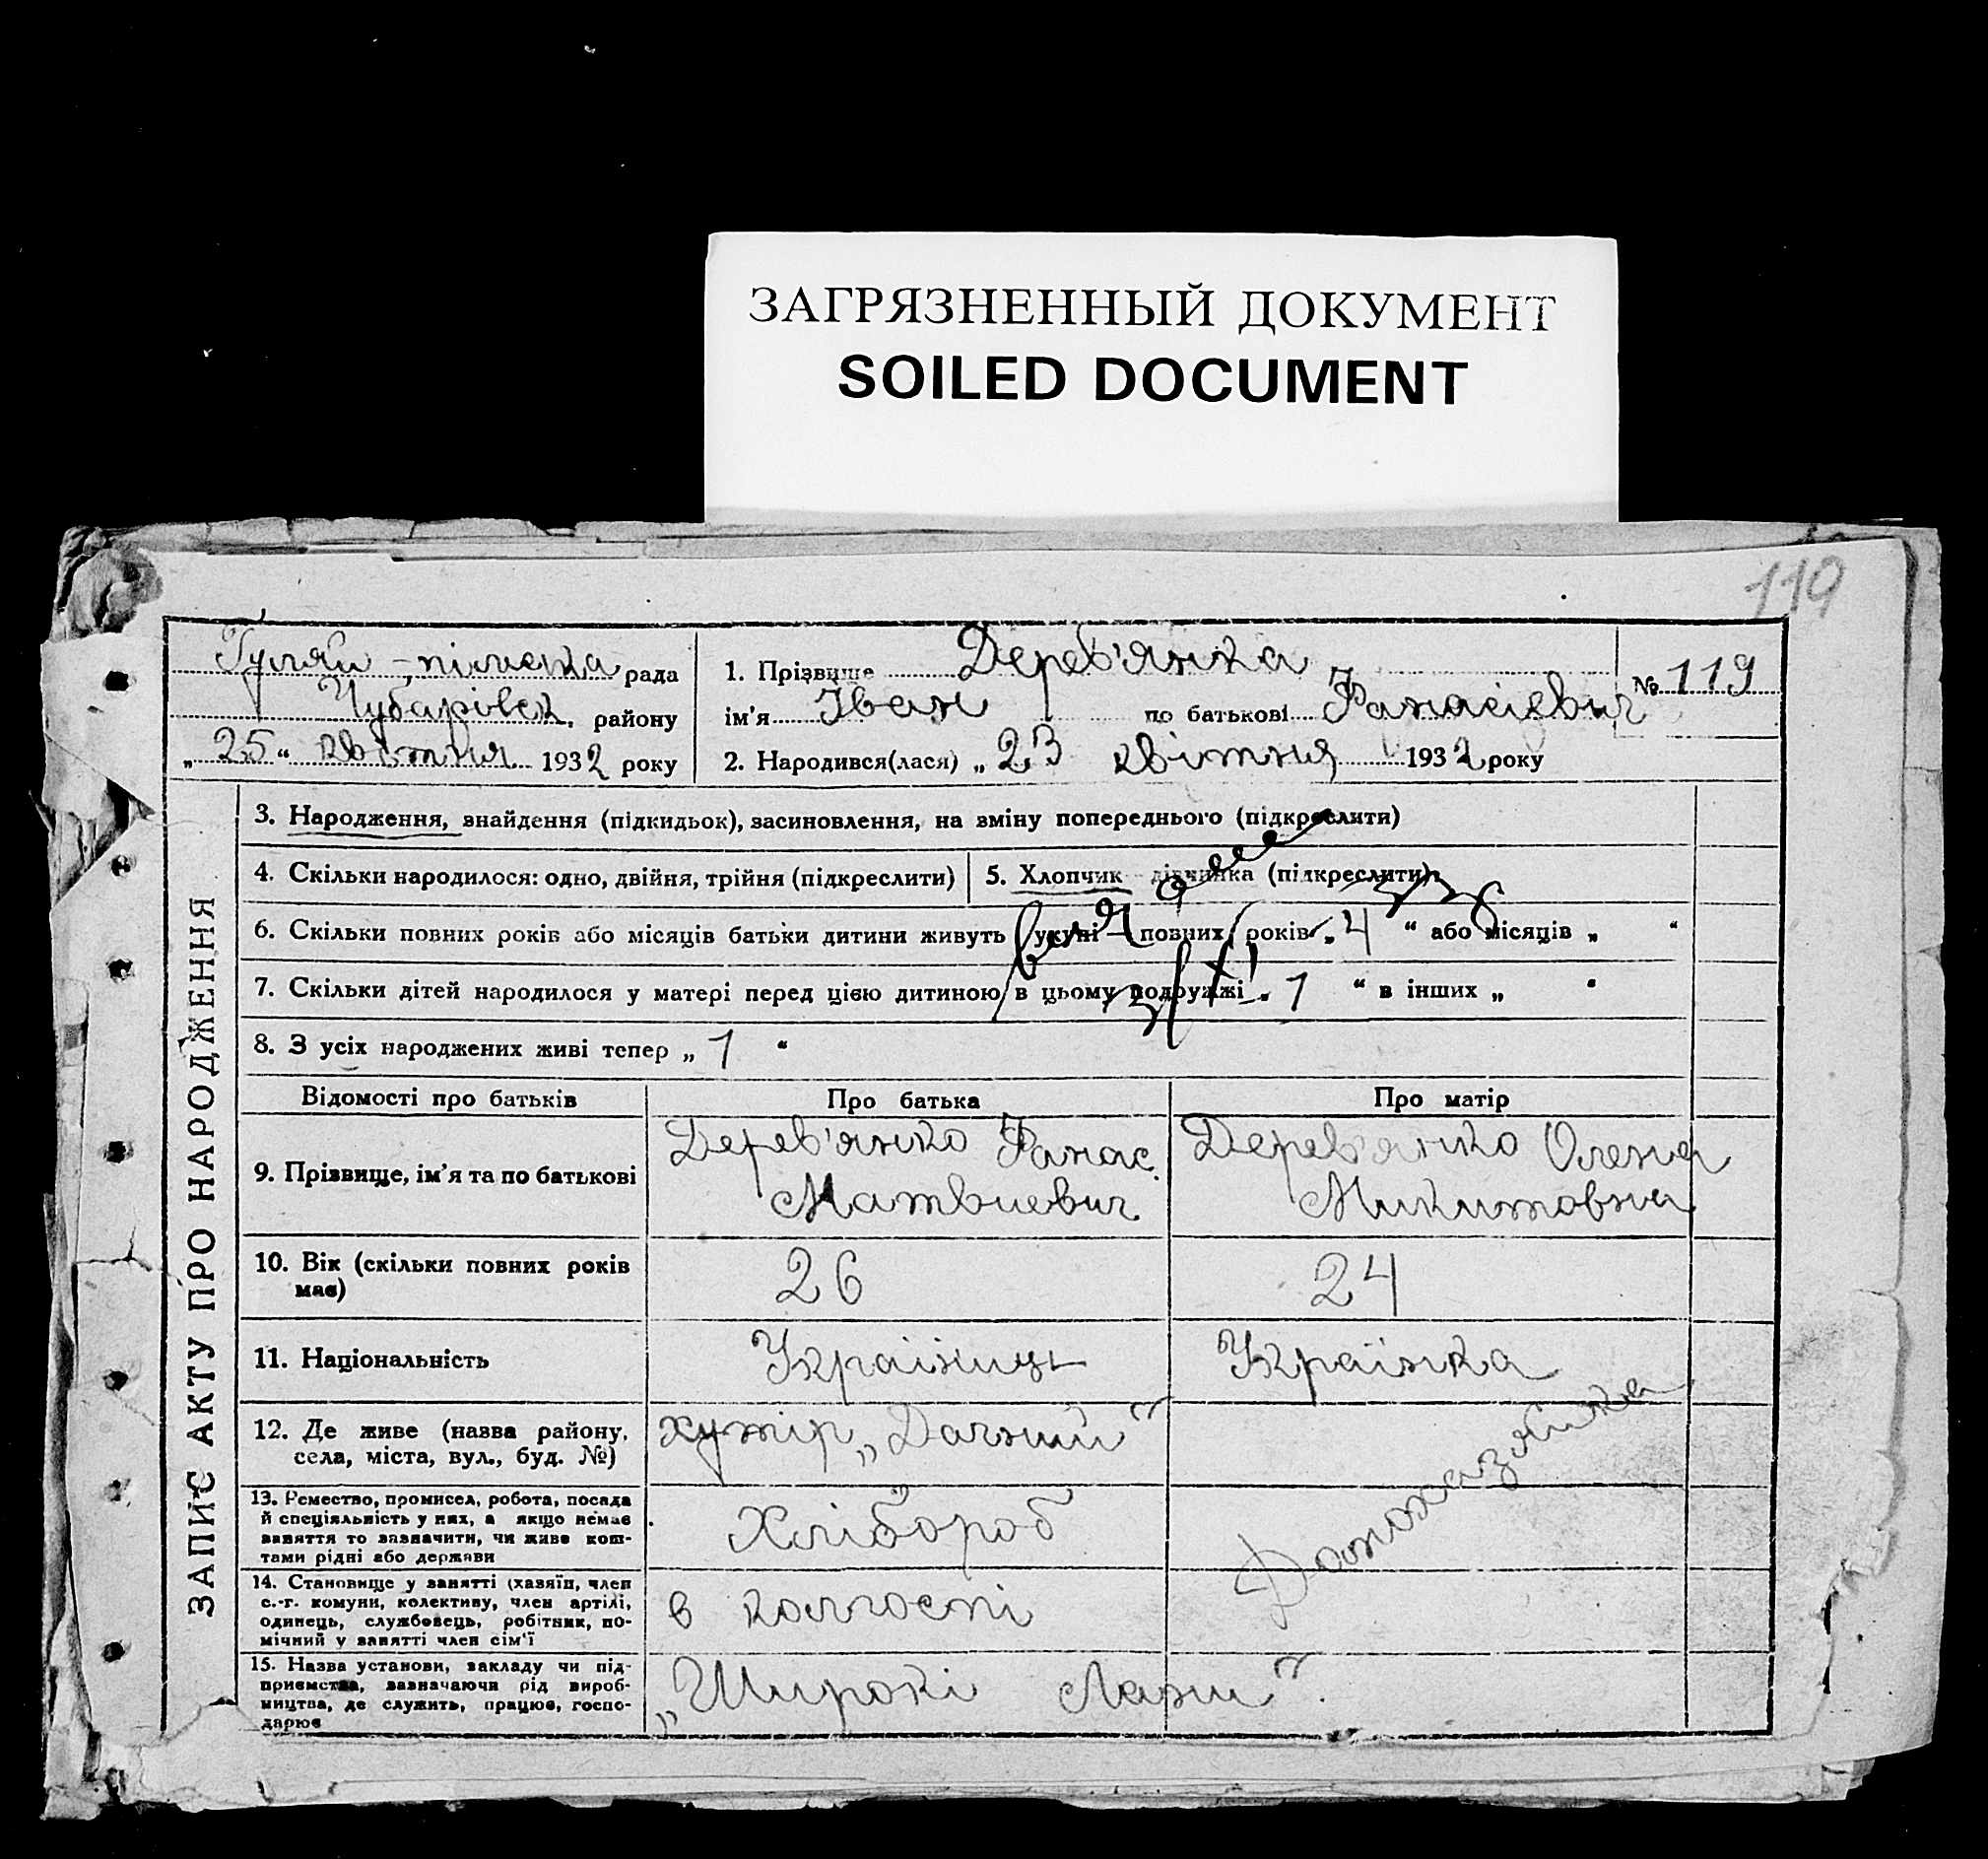 ЗАГРЯЗНЕННЫЙ ДОКУМЕНТ
SOILED DOCUMENT
119
Гуляй-пільська рада
Чубарівск. району
„25“ квітня 1932 року
1. Прізвище Дерев'янка
ім'я Іван по батькові Фанасієвич
№ 119
2. Народився(лася) „23 квітня 1932 року
ЗАПИС АКТУ ПРО НАРОДЖЕННЯ
3. Народження, знайдення (підкидьок), засиновлення, на зміну попереднього (підкреслити)
4. Скільки народилося: одно, двійня, трійня (підкреслити)
5. Хлопчик дівчинка (підкреслити)
6. Скільки повних років або місяців батьки дитини живуть укупі — повних років „4“ або місяців „ “
7. Скільки дітей народилося у матері перед цією дитиною в цьому подружжі „1“ в інших „ “
8. З усіх народжених живі тепер „1“
Відомості про батьків Про батька Про матір
9. Прізвище, ім'я та по батькові
Дерев'янко Фанас.
Матвиевич
Дерев'янко Олена
Микитовна
10. Вік (скільки повних років
має)
26
24
11. Національність
Українць
Українка
12. Де живе (назва району,
села, міста, вул., буд. №)
хутір „Дачний“
13. Ремество, промисел, робота, посада
й спеціяльність у них, а якщо немає
заняття то зазначити, чи живе кош-
тами рідні або держави
Хлібороб
Домохазяйка
14. Становище у занятті (хазяїн, член
с.-г. комуни, колективу, член артілі,
одинець, службовець, робітник, по-
мічний у занятті член сім'ї
в колгоспі
15. Назва установи, закладу чи під-
приємства, зазначаючи рід вироб-
ництва, де служить, працює, госпо-
дарює
„Широкі Лани“.